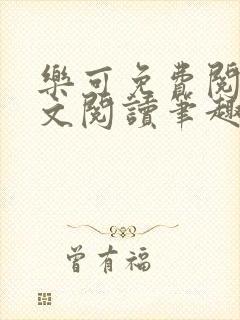 樂可免費閱
文閱讀筆趣
曾有福